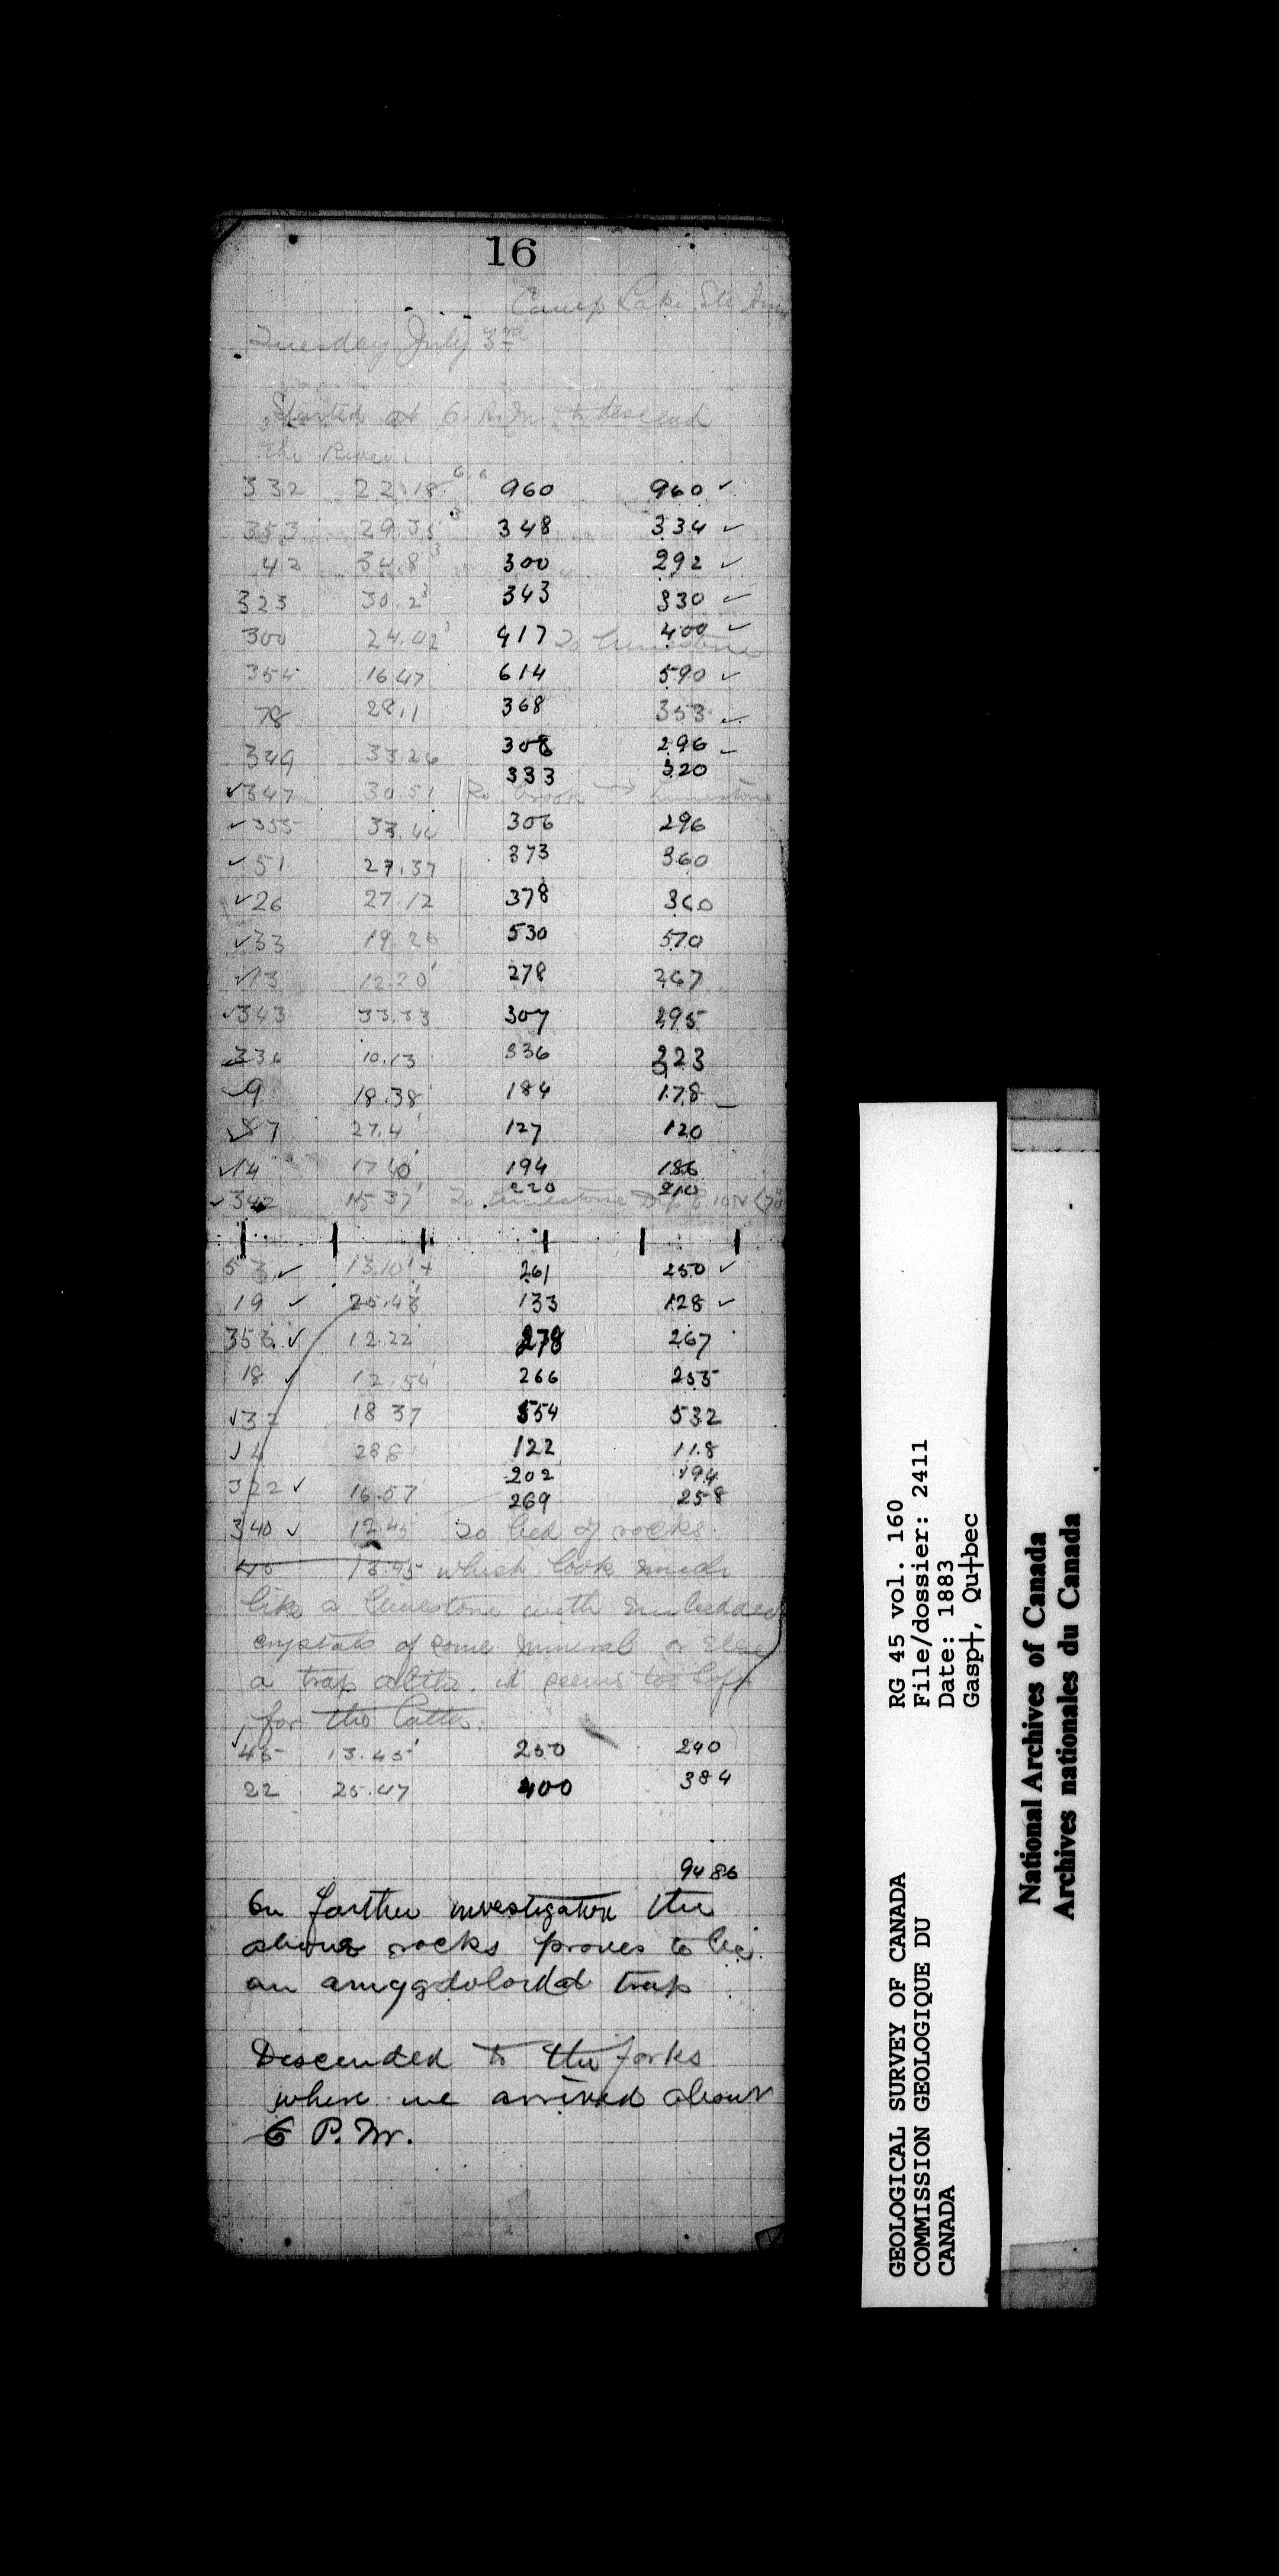 16
Camp Lake Ste Anne
Tuesday July 3rd
Started at 6 A.M. to descend
the River.
332 22.18 960 960 ✓
353 29.35 348 334 ✓
42 34.8 300 292 ✓
323 30.2 343 330 ✓
300 24.02 417 To limestone 400 ✓
354 16.47 614 590 ✓
78 28.11 368 353 ✓
349 33.26 308 296
333 320
✓ 347 30.51 To brook → limestone
✓ 355 33.44 306 296
✓ 51 27.37 373 360
✓ 26 27.12 378 360
✓ 33 19.26 530 570
✓ 13 12.20 278 267
✓ 343 33.33 307 295
336 10.13 336 323
✓ 9 18.38 184 178
✓ 87 27.4 127 120
✓ 14 17.40 194 186
220 210
✓ 342 15.37 To limestone Dip
53 ✓ 13.10 + 261 250 ✓
19 ✓ 25.43 133 128 ✓
353 ✓ 12.22 278 267
18 ✓ 12.54 266 255
✓ 37 18 37 554 532
✓ 4 28 8 122 118
202 194
322 ✓ 16.57 269 258
340 ✓ 12.45 To bed of rocks
45 13.45 which look much
like a limestone with embedded
crystals of some mineral or else
a trap it seems too soft
for the latter.
✓ 45 13.45 250 240
22 25.47 400 384
9486
On farther investigation the
above rocks proves to be
an amygdoloidal trap
Descended to the forks
where we arrived about
6 P.M.
GEOLOGICAL SURVEY OF CANADA
COMMISSION GEOLOGIQUE DU
CANADA
RG 45 vol. 160
File/dossier: 2411
Date: 1883
Gasp†, Qu†bec
National Archives of Canada
Archives nationales du Canada